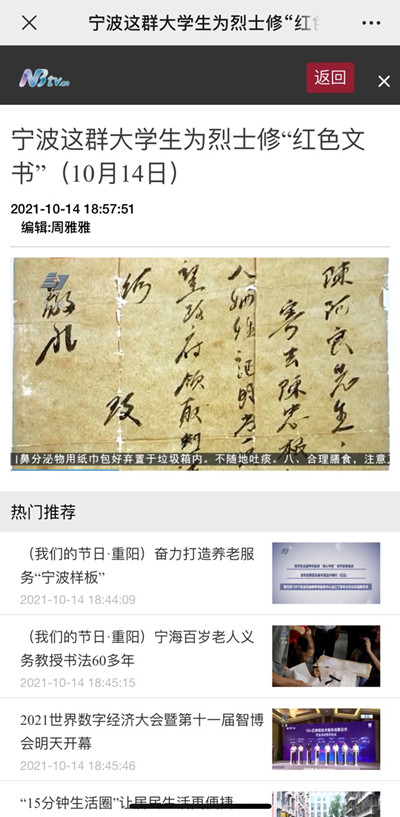 宁波这群大学生为烈士修“红
NBtv.cn
返回
宁波这群大学生为烈士修“红色文
书”（10月14日）
2021-10-14 18:57:51
编辑:周雅雅
陳阿良先生，
寄去陳忠
証明
望政府領取
致
敬礼
鼻分泌物用纸巾包好弃置于垃圾箱内。不随地吐痰。八、合理膳食，注意
热门推荐
（我们的节日·重阳）奋力打造养老服
务“宁波样板”
2021-10-14 18:44:09
（我们的节日·重阳）宁海百岁老人义
务教授书法60多年
2021-10-14 18:45:15
2021世界数字经济大会暨第十一届智博
会明天开幕
2021-10-14 18:45:46
“15分钟生活圈”让居民生活更便捷